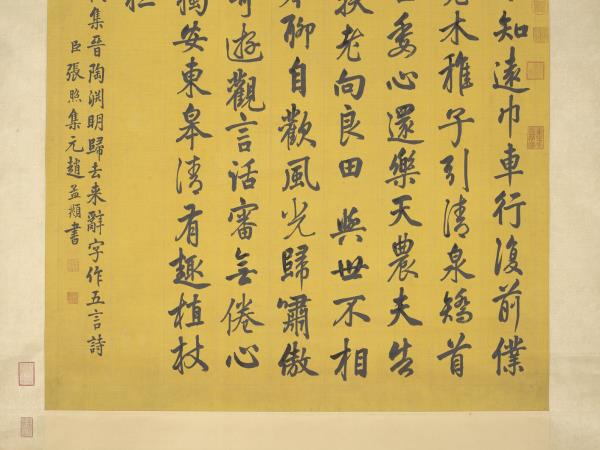 知遠巾車行復前僕
木稚子引清泉矯首
委心還樂天農夫告
扶老向良田與世不相
聊自歡風光歸嘯傲
遊觀言話審無倦心
獨安東皋清有趣植杖
集晉陶淵明歸去来辭字作五言詩
臣張照集元趙孟頫書